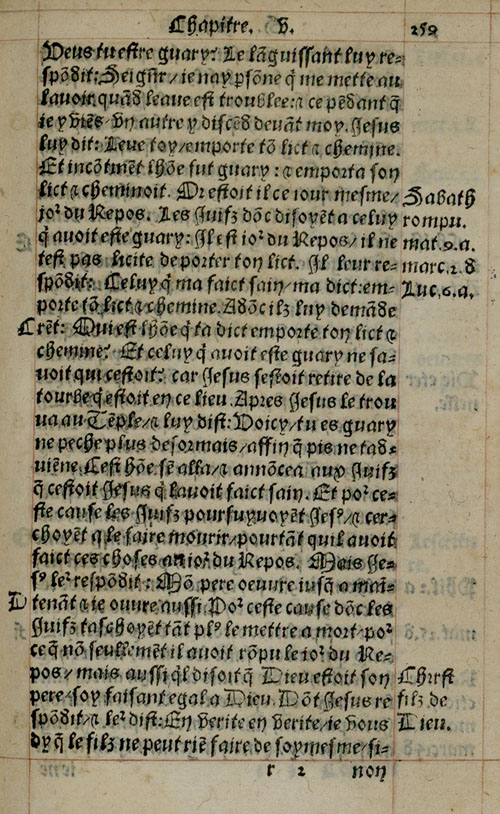 Chapitre. V. 259
Veus tu estre guary? Le lãguissant luy re=
spõdit: Seigñr / ie nay psõne q̃ me mette au
lauoir quãd leaue est troublee: ⁊ ce pẽdant q̃
ie y viẽs / vn autre y discẽd deuãt moy. Jesus
luy dit: Leue toy / emporte tõ lict ⁊ chemine.
Et incõtinẽt lhõe fut guary: ⁊ emporta son
lict ⁊ cheminoit. Or estoit il ce iour mesme /
ior du Repos. Les Juifz dõc disoyẽt a celuy
q̃ auoit este guary: Il est ior du Repos / il ne
test pas licite de porter ton lict. Il leur re=
spõdit: Celuy q̃ ma faict sain / ma dict: em=
porte tõ lict ⁊ chemine. Adõc ilz luy demãde
C rẽt: Qui est lhõe q̃ ta dict emporte ton lict ⁊
chemine? Et celuy q̃ auoit este guary ne sa=
uoit qui cestoit? car Jesus sestoit retire de la
tourbe q̃ estoit en ce lieu. Apres Jesus le trou
ua au Tẽple / ⁊ luy dist: Voicy / tu es guary
ne peche plus desormais / affin q̃ pis ne tad=
uiẽne. Cest hõe sẽ alla / ⁊ annõcea aux Juifz
q̃ cestoit Jesus q̃ lauoit faict sain. Et por ce=
ste cause les Juifz poursuyuoyẽt Jesꝰ / ⁊ cer=
choyẽt a le faire mourir / pourtãt quil auoit
faict ces choses au ior du Repos. Mais Je=
sꝰ ler respõdit: Mõ pere oeuure iusq̃ a mai̅=
D tenãt ⁊ ie ouure aussi. Por ceste cause dõc les
Juifz taschoyẽt tãt plꝰ le mettre a mort / por
ce q̃ nõ seullemẽt il auoit rõpu le ior du Re=
pos / mais aussi q̃l disoit q̃ Dieu estoit son
pere / soy faisant egal a Dieu. Dõt Jesus re
spõdit / ⁊ ler dist: En verite en verite / ie vous
dy q̃ le filz ne peut riẽ faire de soymesme / si=
r 2 non
Sabath
rompu.
mat. 9. a.
marc. 2. d
Luc. 6. a.
Christ
filz de
Dieu.